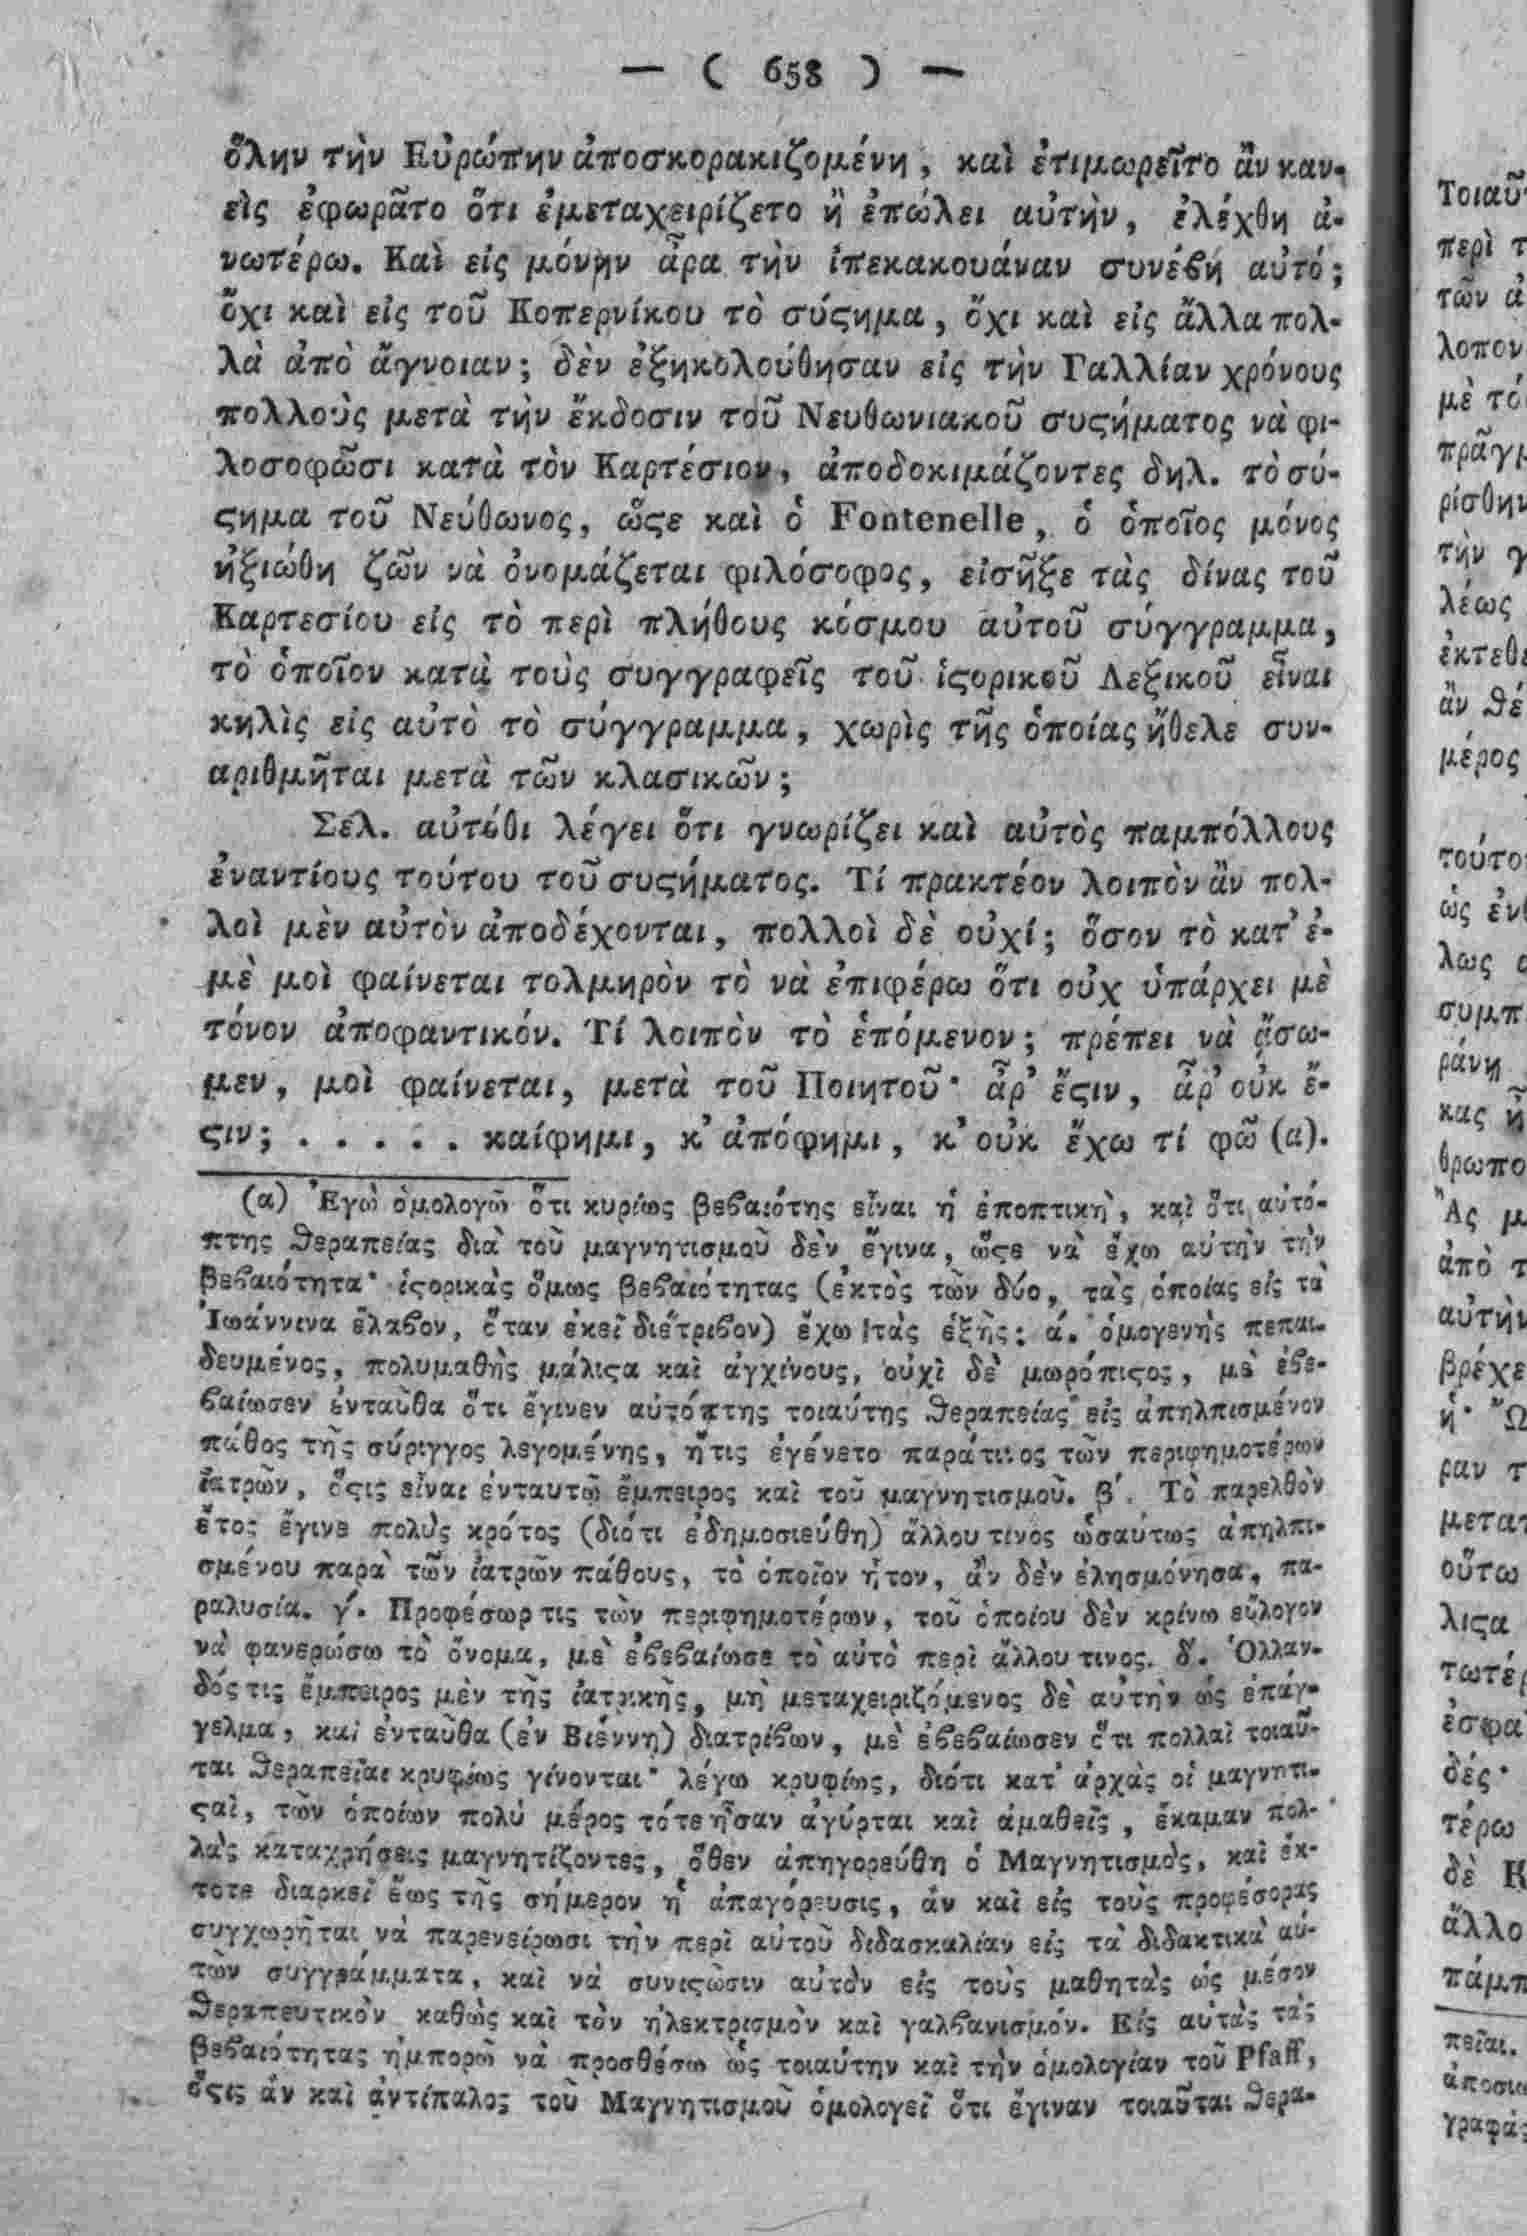 — ( 658 ) —
ὅλην τὴν Εὐρώπην ἀποσκορακιζομένη, καὶ ἐτιμωρεῖτο ἂν καν-
εὶς ἐφωρᾶτο ὅτι ἐμεταχειρίζετο ἢ ἐπώλει αὐτὴν, ἐλέχθη ἀ-
νωτέρω. Καὶ εἰς μόνην ἆρα τὴν ἰπεκακουάναν συνέβη αὐτό;
ὄχι καὶ εἰς τοῦ Κοπερνίκου τὸ σύςημα, ὄχι καὶ εἰς ἄλλα πολ-
λὰ ἀπὸ ἄγνοιαν; δὲν ἐξηκολούθησαν εἰς τὴν Γαλλίαν χρόνους
πολλοὺς μετὰ τὴν ἔκδοσιν τοῦ Νευθωνιακοῦ συςήματος νὰ φι-
λοσοφῶσι κατὰ τὸν Καρτέσιον, ἀποδοκιμάζοντες δηλ. τὸ σύ-
ςημα τοῦ Νεύθωνος, ὥςε καὶ ὁ Fontenelle, ὁ ὁποῖος μόνος
ἠξιώθη ζῶν νὰ ὀνομάζεται φιλόσοφος, εἰσῆξε τὰς δίνας τοῦ
Καρτεσίου εἰς τὸ περὶ πλήθους κόσμου αὐτοῦ σύγγραμμα,
τὸ ὁποῖον κατὰ τοὺς συγγραφεῖς τοῦ ἱςορικοῦ Λεξικοῦ εἶναι
κηλὶς εἰς αὐτὸ τὸ σύγγραμμα, χωρὶς τῆς ὁποίας ἤθελε συν-
αριθμῆται μετὰ τῶν κλασικῶν;
Σελ. αὐτόθι λέγει ὅτι γνωρίζει καὶ αὐτὸς παμπόλλους
ἐναντίους τούτου τοῦ συςήματος. Τί πρακτέον λοιπὸν ἂν πολ-
λοὶ μὲν αὐτὸν ἀποδέχονται, πολλοὶ δὲ οὐχί; ὅσον τὸ κατ' ἐ-
μὲ μοὶ φαίνεται τολμηρὸν τὸ νὰ ἐπιφέρω ὅτι οὐχ ὑπάρχει μὲ
τόνον ἀποφαντικόν. Τί λοιπὸν τὸ ἑπόμενον; πρέπει νὰ ᾄσω-
μεν, μοὶ φαίνεται, μετὰ τοῦ Ποιητοῦ· ἆρ' ἔςιν, ἆρ' οὐκ ἔ-
ςιν; . . . . . καίφημι, κ' ἀπόφημι, κ' οὐκ ἔχω τί φῶ (α).
(α) Ἐγὼ ὁμολογῶ ὅτι κυρίως βεβαιότης εἶναι ἡ ἐποπτικὴ, καὶ ὅτι αὐτό-
πτης θεραπείας διὰ τοῦ μαγνητισμοῦ δὲν ἔγινα, ὥςε νὰ ἔχω αὐτὴν τὴν
βεβαιότητα· ἱςορικὰς ὅμως βεβαιότητας (ἐκτὸς τῶν δύο, τὰς ὁποίας εἰς τὰ
Ἰωάννινα ἔλαβον, ὅταν ἐκεῖ διέτριβον) ἔχω τὰς ἑξῆς: ά. ὁμογενὴς πεπαι-
δευμένος, πολυμαθὴς μάλιςα καὶ ἀγχίνους, οὐχὶ δὲ μωρόπιςος, μὲ ἐβε-
βαίωσεν ἐνταῦθα ὅτι ἔγινεν αὐτόπτης τοιαύτης θεραπείας εἰς ἀπηλπισμένον
πάθος τῆς σύριγγος λεγομένης, ἥτις ἐγένετο παράτινος τῶν περιφημοτέρων
ἰατρῶν, ὅςις εἶναι ἐνταυτῷ ἔμπειρος καὶ τοῦ μαγνητισμοῦ. β΄. Τὸ παρελθὸν
ἔτος ἔγινε πολὺς κρότος (διότι ἐδημοσιεύθη) ἄλλου τινος ὡσαύτως ἀπηλπι-
σμένου παρὰ τῶν ἰατρῶν πάθους, τὸ ὁποῖον ἦτον, ἂν δὲν ἐλησμόνησα, πα-
ραλυσία. γ΄. Προφέσωρ τις τῶν περιφημοτέρων, τοῦ ὁποίου δὲν κρίνω εὔλογον
νὰ φανερώσω τὸ ὄνομα, μὲ ἐβεβαίωσε τὸ αὐτὸ περὶ ἄλλου τινος. δ΄. Ὁλλαν-
δός τις ἔμπειρος μὲν τῆς ἰατρικῆς, μὴ μεταχειριζόμενος δὲ αὐτὴν ὡς ἐπάγ-
γελμα, καὶ ἐνταῦθα (ἐν Βιέννῃ) διατρίβων, μὲ ἐβεβαίωσεν ὅτι πολλαὶ τοιαῦ-
ται θεραπεῖαι κρυφίως γίνονται· λέγω κρυφίως, διότι κατ' ἀρχὰς οἱ μαγνητι-
ςαὶ, τῶν ὁποίων πολὺ μέρος τότε ἦσαν ἀγύρται καὶ ἀμαθεῖς, ἔκαμαν πολ-
λὰς καταχρήσεις μαγνητίζοντες, ὅθεν ἀπηγορεύθη ὁ Μαγνητισμὸς, καὶ ἐκ-
τοτε διαρκεῖ ἕως τῆς σήμερον ἡ ἀπαγόρευσις, ἂν καὶ εἰς τοὺς προφέσορας
συγχωρῆται νὰ παρενείρωσι τὴν περὶ αὐτοῦ διδασκαλίαν εἰς τὰ διδακτικὰ αὐ-
τῶν συγγράμματα, καὶ νὰ συνιςῶσιν αὐτὸν εἰς τοὺς μαθητὰς ὡς μέσον
θεραπευτικὸν καθὼς καὶ τὸν ἠλεκτρισμὸν καὶ γαλβανισμόν. Εἰς αὐτὰς τὰς
βεβαιότητας ἠμπορῶ νὰ προσθέσω ὡς τοιαύτην καὶ τὴν ὁμολογίαν τοῦ Pfaff,
ὅςις ἂν καὶ ἀντίπαλος τοῦ Μαγνητισμοῦ ὁμολογεῖ ὅτι ἔγιναν τοιαῦται θερα-
Τοιαῦτ
περὶ τ
τῶν ἀ
λοπον
μὲ τό
πρᾶγμ
ρίσθην
τὴν γ
λέως
ἐκτεθε
ἂν θέ
μέρος
τοῦτο
ὡς ἐν
λως
συμπ
ράνη
κας ἢ
θρωπο
Ἂς μ
ἀπὸ τ
αὐτὴν
βρέχε
ἡ· Ὢ
ραν τ
μετατ
οὕτω
λιςα
τωτέρ
ἐσφα
δές·
τέρω
δὲ Κ
ἄλλο
πάμπ
πεῖαι.
ἀποσιω
γραφὰς